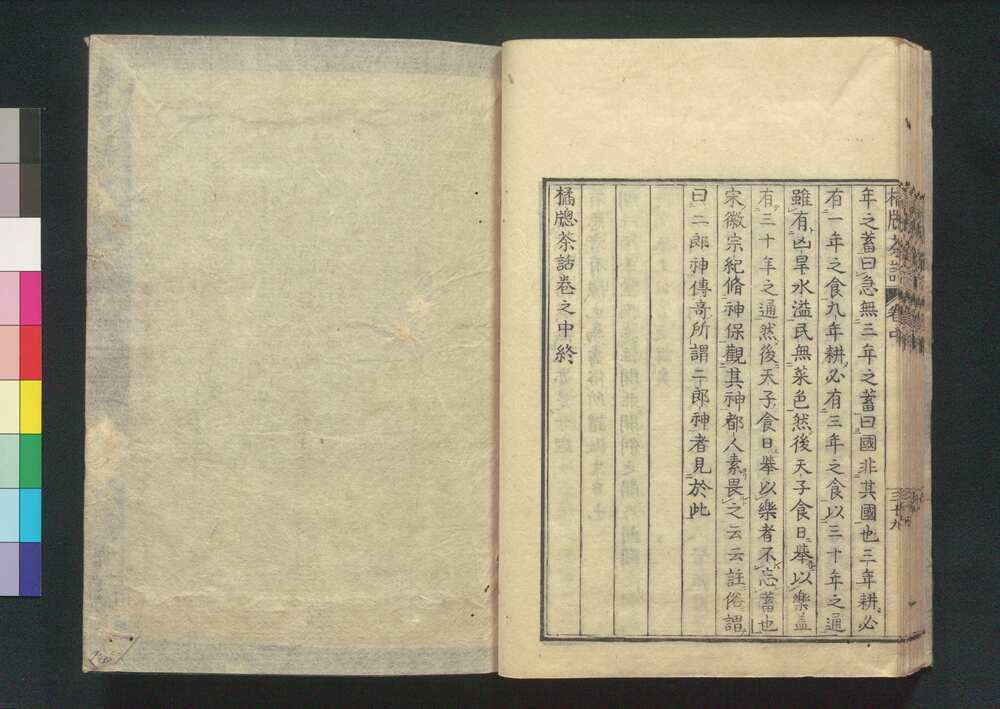 橘牕茶話 卷中 三十九
年之蓄曰急無三年之蓄曰國非其國也三年耕必
有一年之食九年耕必有三年之食以三十年之通
雖有凶旱水溢民無菜色然後天子食日舉以樂盖
有三十年之通然後天子食日舉以樂者不忘蓄也
宋徽宗紀脩神保觀其神都人素畏之云云註俗謂
曰二郎神傳奇所謂二郎神者見於此
橘牕茶話卷之中終